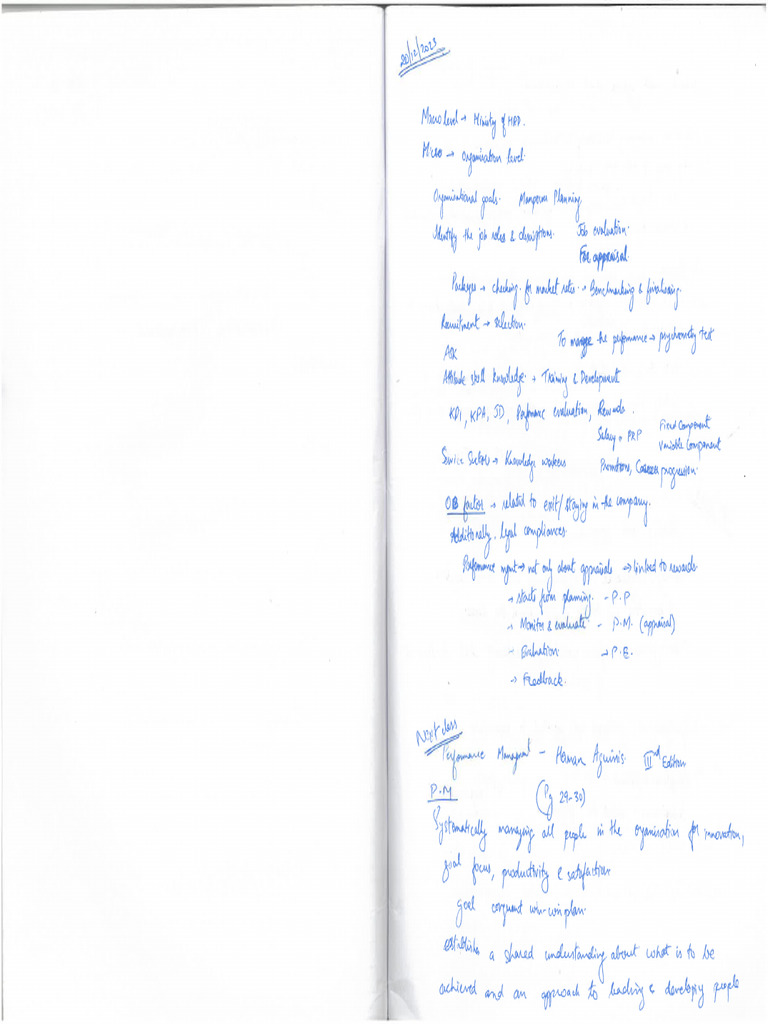 20/12/2023
Micro level → Ministry of HRD.
Micro → Organisation level.
Organisational goals. Manpower Planning.
Identify the job roles & descriptions. Job evaluation.
For appraisal.
Packages → checking for market rates → Benchmarking & finalising.
Recruitment → selection.
To manage the performance → psychometry test
ASK
Attitude skill knowledge. + Training & Development
KRI, KPA, JD, Performance evaluation, Rewards.
Salary = PRP Fixed Component
Variable Component
Service Sector → Knowledge workers Promotions, Career progression.
OB factor → related to exit/staying in the company.
Additionally, legal compliances.
Performance mgmt → not only about appraisals → linked to rewards.
→ starts from planning. - P.P
→ Monitor & evaluate - P.M. (appraisal)
- Evaluation → P.E.
→ Feedback.
Next class
Performance Managment - Herman Aguinis. III nd Edition
P.M (Pg 29-30)
Systematically managing all people in the organisation for innovation,
goal focus, productivity & satisfaction
goal congruent win-win plan.
establishes a shared understanding about what is to be
achieved and an approach to leading & developing people